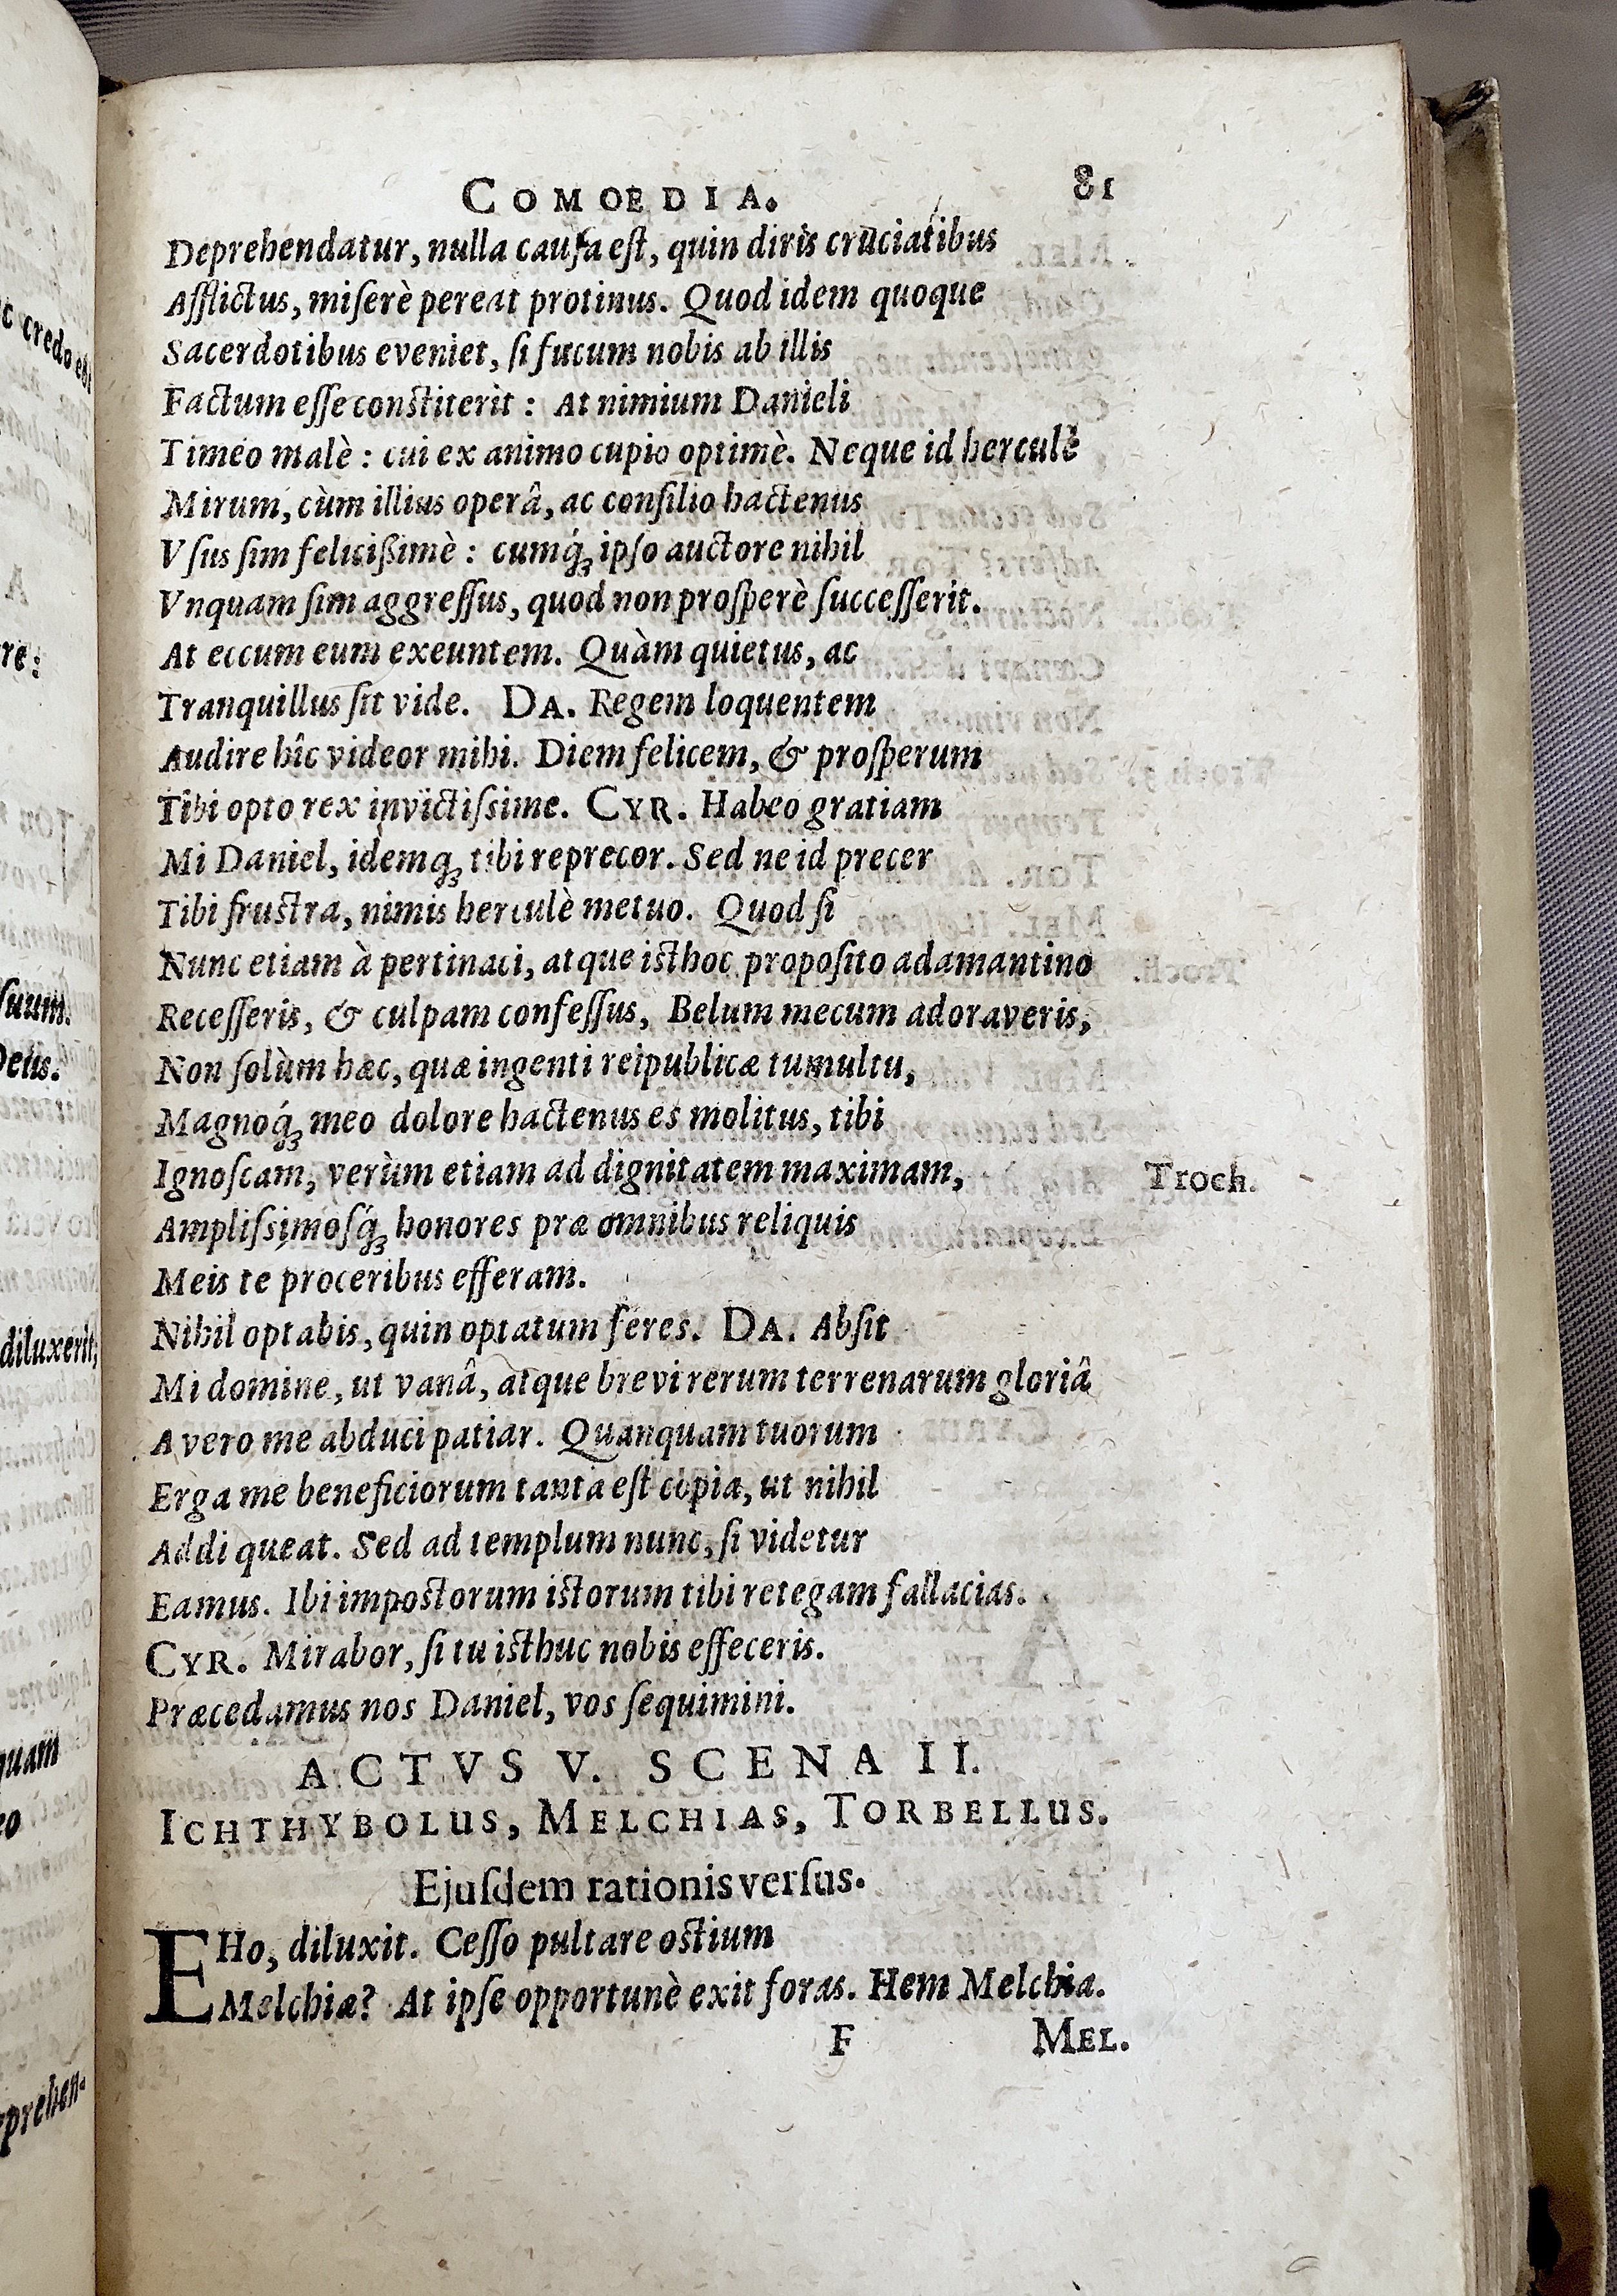 COMOEDIA. 81
Deprehendatur, nulla cauſa eſt, quin diris cruciatibus
Afflictus, miſerè pereat protinus. Quod idem quoque
Sacerdotibus eveniet, ſi fucum nobis ab illis
Factum eſſe conſtiterit : At nimium Danieli
Timeo malè : cui ex animo cupio optimè. Neque id herculè
Mirum, cùm illius operâ, ac conſilio hactenus
Vſus ſim feliciſſimè : cumq́ꝫ ipſo auctore nihil
Vnquam ſim aggreſſus, quod non proſperè ſucceſſerit.
At eccum eum exeuntem. Quàm quietus, ac
Tranquillus ſit vide. DA. Regem loquentem
Audire hîc videor mihi. Diem felicem, & proſperum
Tibi opto rex invictiſsime. CYR. Habeo gratiam
Mi Daniel, idemqꝫ tibi reprecor. Sed ne id precer
Tibi fruſtra, nimis herculè metuo. Quod ſi
Nunc etiam à pertinaci, atque iſthoc propoſito adamantino
Receſſeris, & culpam confeſſus, Belum mecum adoraveris,
Non ſolùm hæc, quæ ingenti reipublicæ tumultu,
Magnoq́ꝫ meo dolore hactenus es molitus, tibi
Ignoſcam, verùm etiam ad dignitatem maximam, Troch.
Ampliſsimoſq́ꝫ honores præ omnibus reliquis
Meis te proceribus efferam.
Nihil optabis, quin optatum feres. DA. Abſit
Mi domine, ut vanâ, atque brevi rerum terrenarum gloriâ
A vero me abduci patiar. Quanquam tuorum
Erga me beneficiorum tanta eſt copia, ut nihil
Addi queat. Sed ad templum nunc, ſi videtur
Eamus. Ibi impoſtorum iſtorum tibi retegam fallacias.
CYR. Mirabor, ſi tu iſthuc nobis effeceris.
Præcedamus nos Daniel, vos ſequimini.
ACTVS V. SCENA II.
ICHTHYBOLUS, MELCHIAS, TORBELLUS.
Ejuſdem rationis verſus.
EHo, diluxit. Ceſſo pultare oſtium
Melchiæ? At ipſe opportunè exit foras. Hem Melchia.
F MEL.